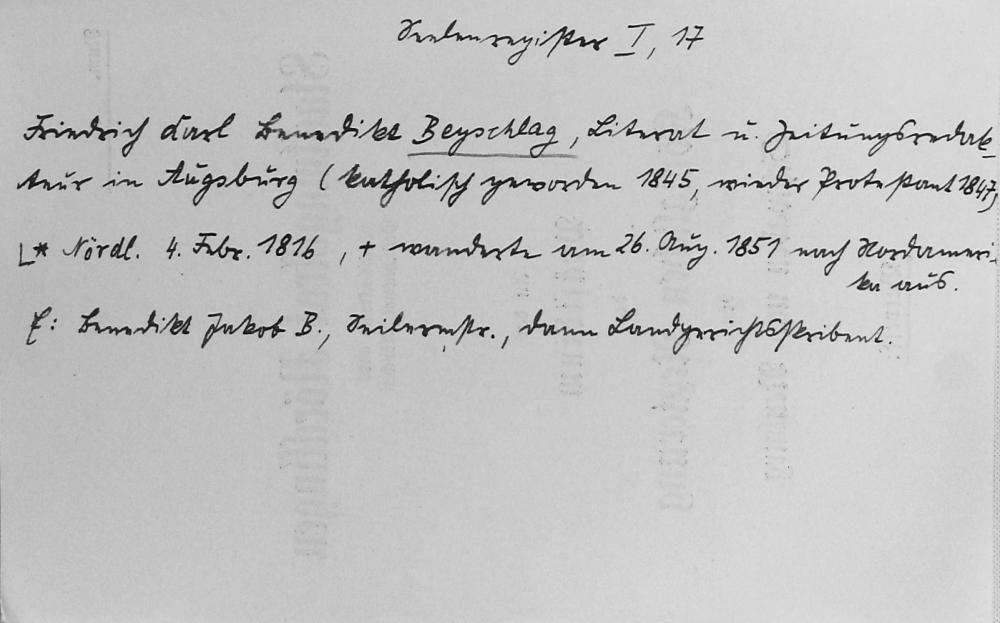 Seelenregister I, 17
Friedrich Karl Benedikt Beyschlag, Literat u. Zeitungsredak-
teur in Augsburg (katholisch geworden 1845, wieder Protestant 1847)
* Nördl. 4. Febr. 1816, + wanderte am 26. Aug. 1851 nach Nordameri-
ka aus.
E: Benedikt Jakob B., Seilermstr., dann Landgerichtsskribent.